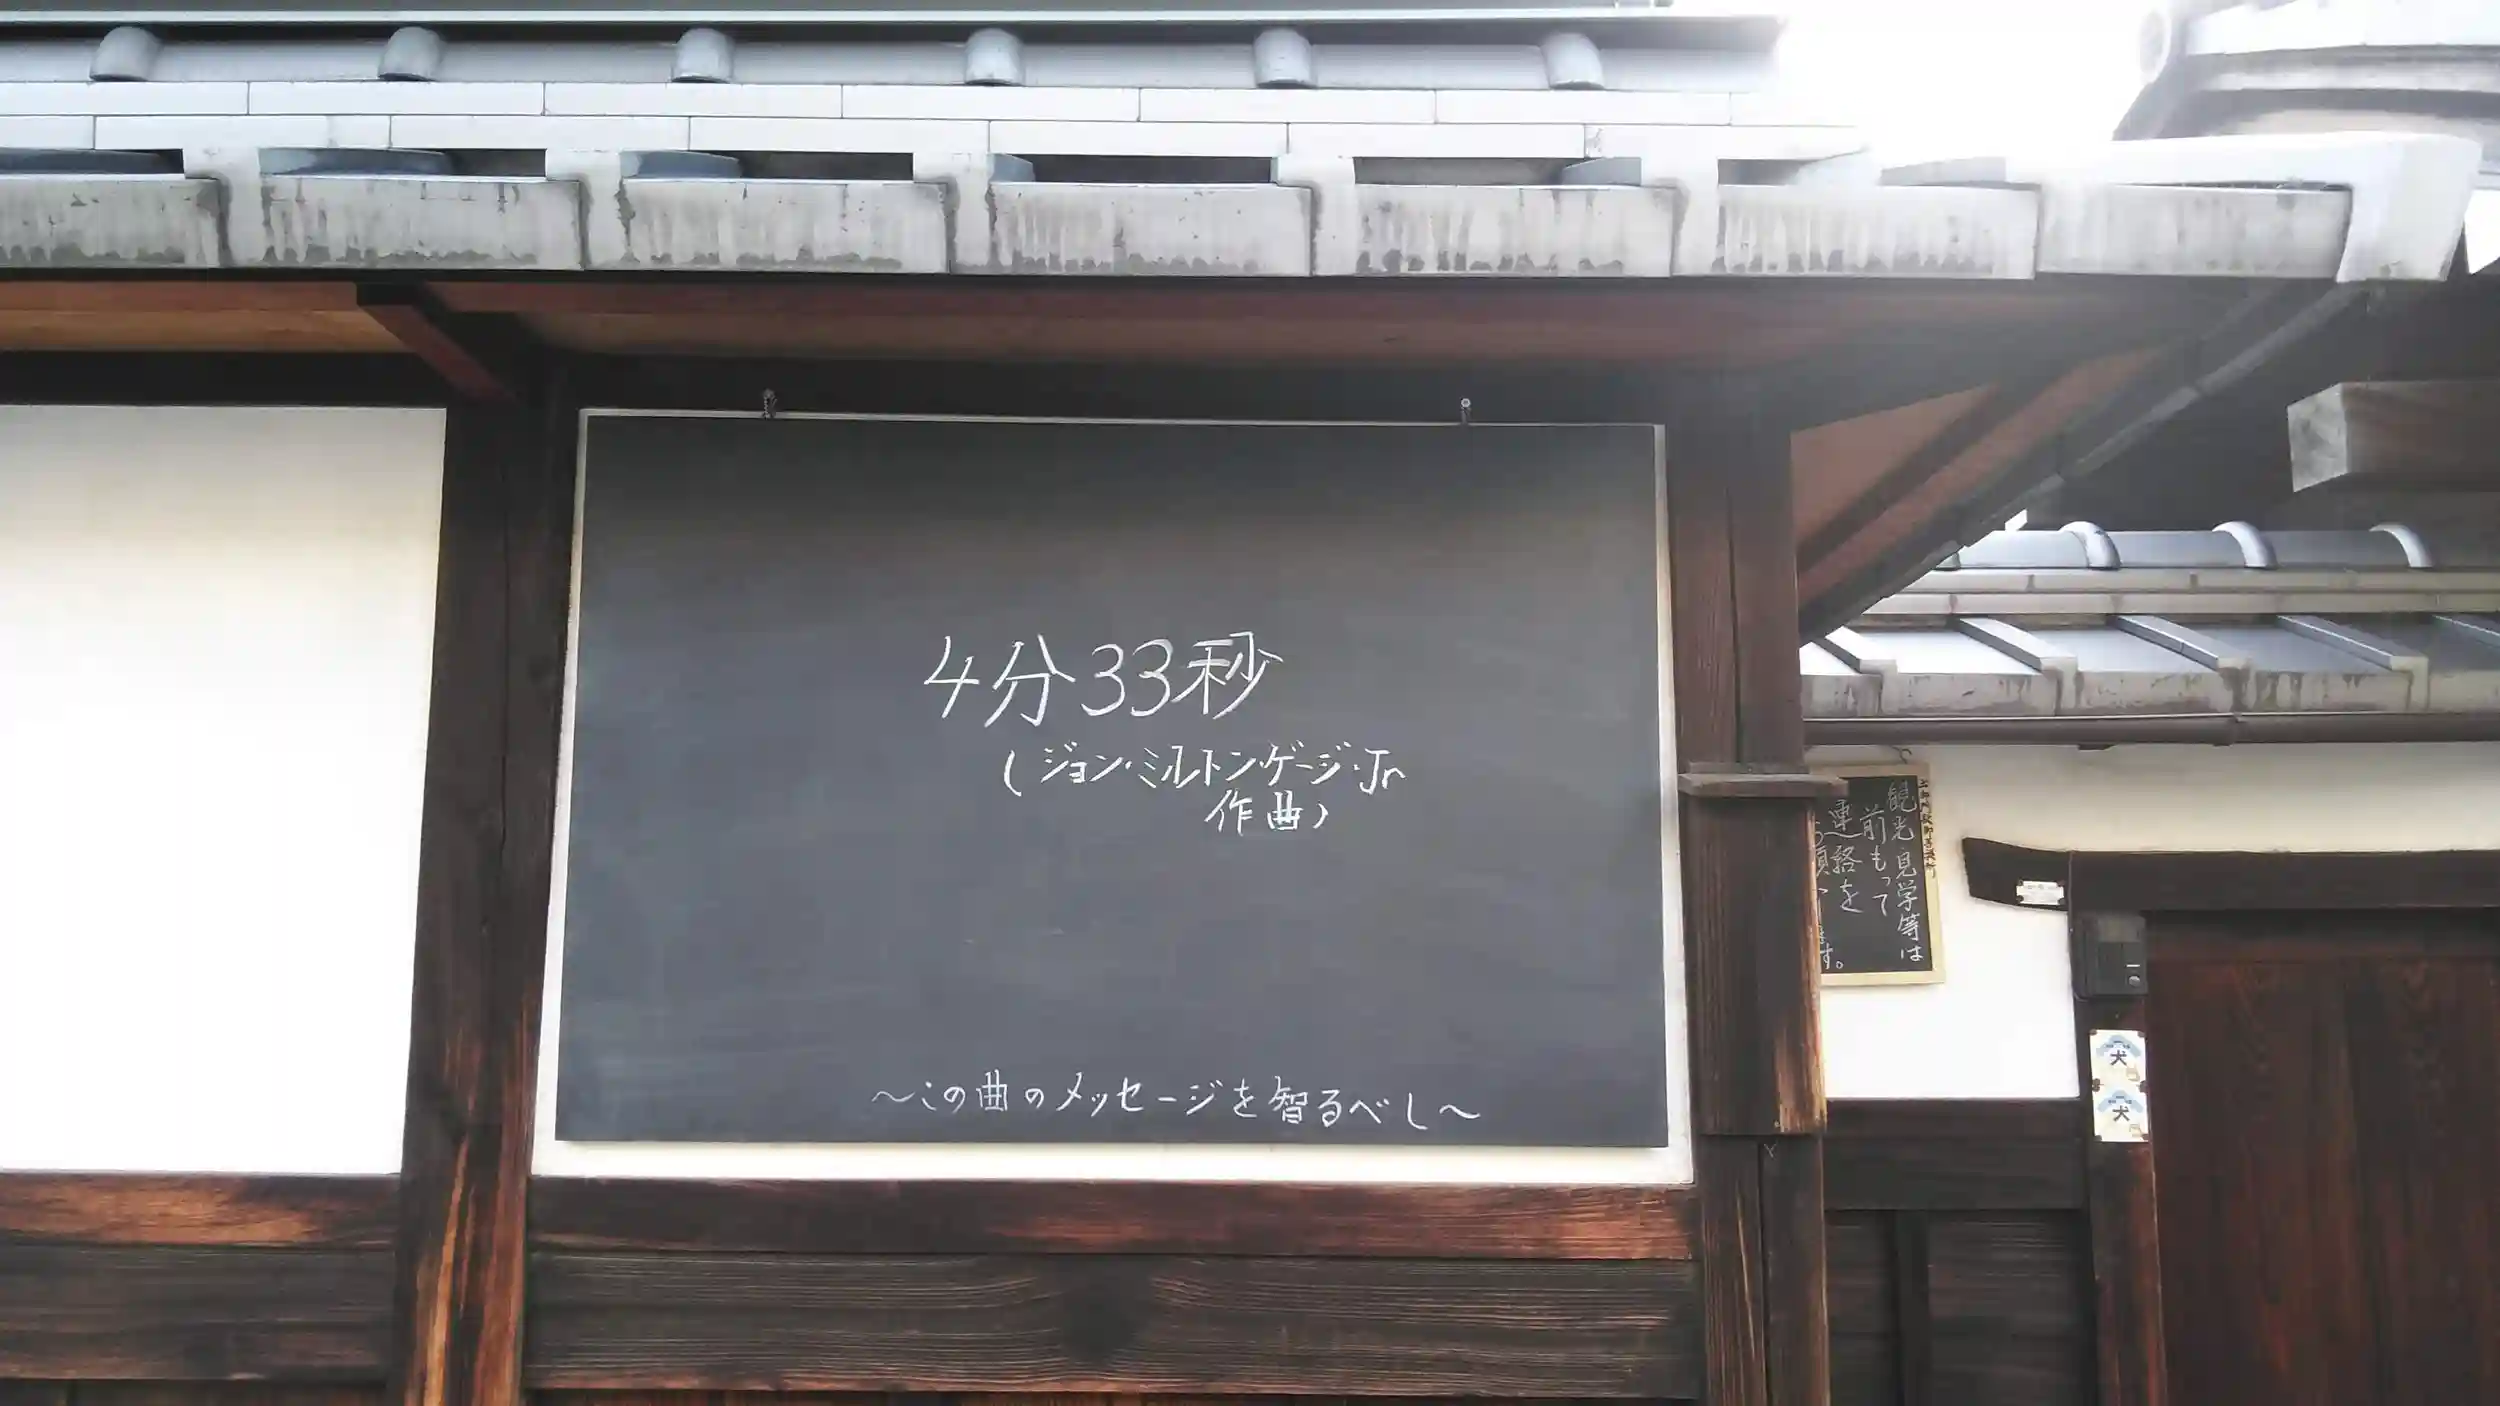 4分33秒
(ジョン・ミルトン・ケージ・Jr
作曲)
〜この曲のメッセージを智るべし〜
観光見学等は
前もって
連絡を
犬
犬